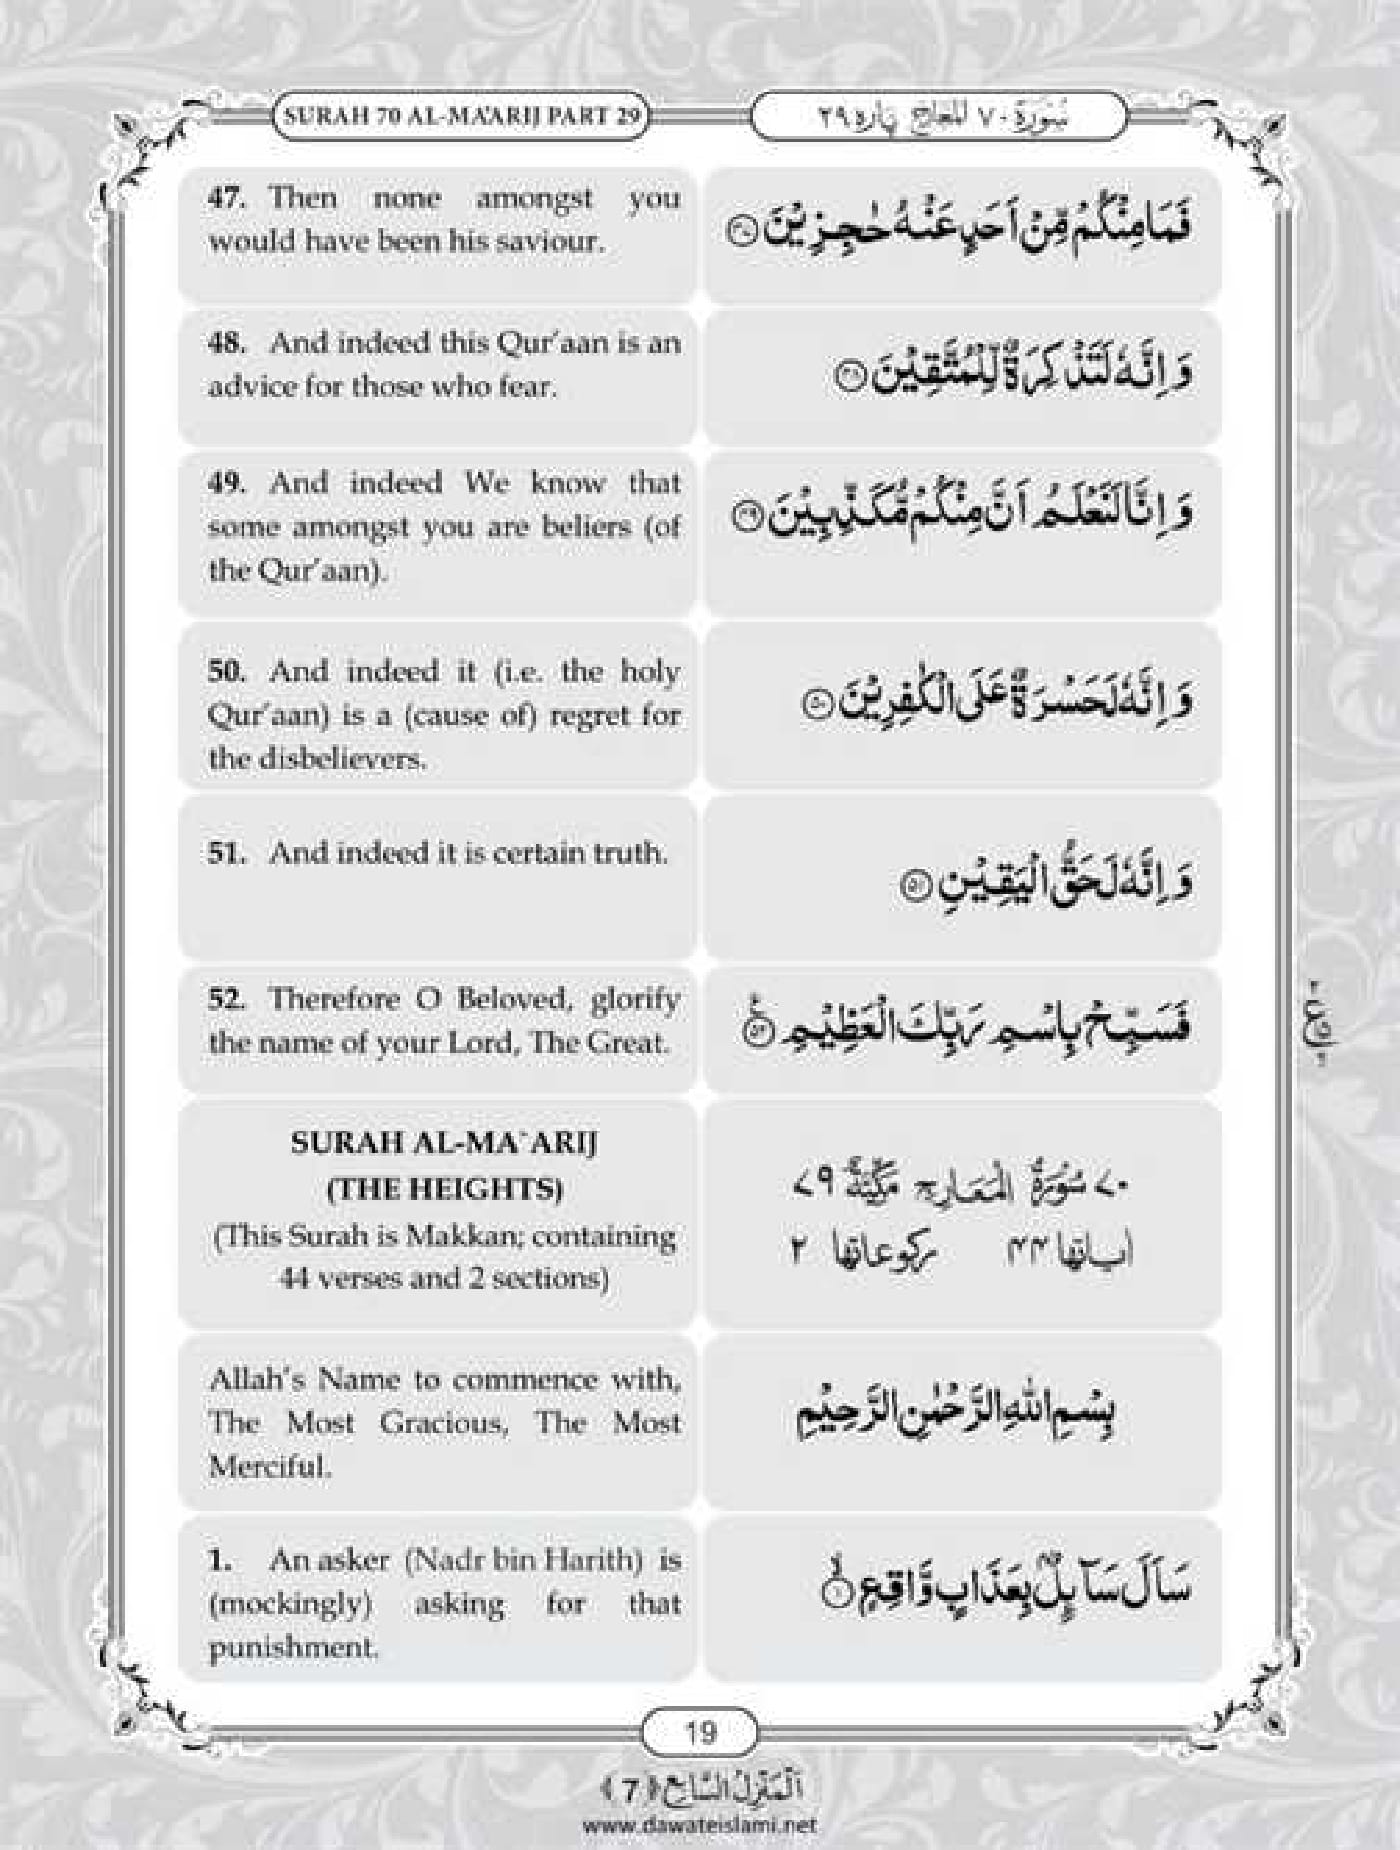 SURAH 70 AL-MA'ARIJ PART 29
سُوْرَة ٧٠ المعارج پاره ٢٩
47. Then none amongst you
would have been his saviour.
فَمَا مِنْكُمْ مِّنْ اَحَدٍ عَنْهُ حٰجِزِیْنَ ۝۴۷
48. And indeed this Qur'aan is an
advice for those who fear.
وَ اِنَّهٗ لَتَذْكِرَةٌ لِّلْمُتَّقِیْنَ ۝۴۸
49. And indeed We know that
some amongst you are beliers (of
the Qur'aan).
وَ اِنَّا لَنَعْلَمُ اَنَّ مِنْكُمْ مُّكَذِّبِیْنَ ۝۴۹
50. And indeed it (i.e. the holy
Qur'aan) is a (cause of) regret for
the disbelievers.
وَ اِنَّهٗ لَحَسْرَةٌ عَلَى الْكٰفِرِیْنَ ۝۵۰
51. And indeed it is certain truth.
وَ اِنَّهٗ لَحَقُّ الْیَقِیْنِ ۝۵۱
52. Therefore O Beloved, glorify
the name of your Lord, The Great.
فَسَبِّحْ بِاسْمِ رَبِّكَ الْعَظِیْمِ ۝۵۲
SURAH AL-MA`ARIJ
(THE HEIGHTS)
(This Surah is Makkan; containing
44 verses and 2 sections)
٧٠ سُوْرَةُ الْمَعَارِجِ مَكِّيَّةٌ ٧٩
اٰیاتها ۴۴ ركوعاتها ٢
Allah's Name to commence with,
The Most Gracious, The Most
Merciful.
بِسْمِ اللّٰهِ الرَّحْمٰنِ الرَّحِیْمِ
1. An asker (Nadr bin Harith) is
(mockingly) asking for that
punishment.
سَاَلَ سَآىٕلٌۢ بِعَذَابٍ وَّاقِعٍ ۝۱
19
اَلْمَنْزِلُ السَّابِع ﴿7﴾
www.dawateislami.net